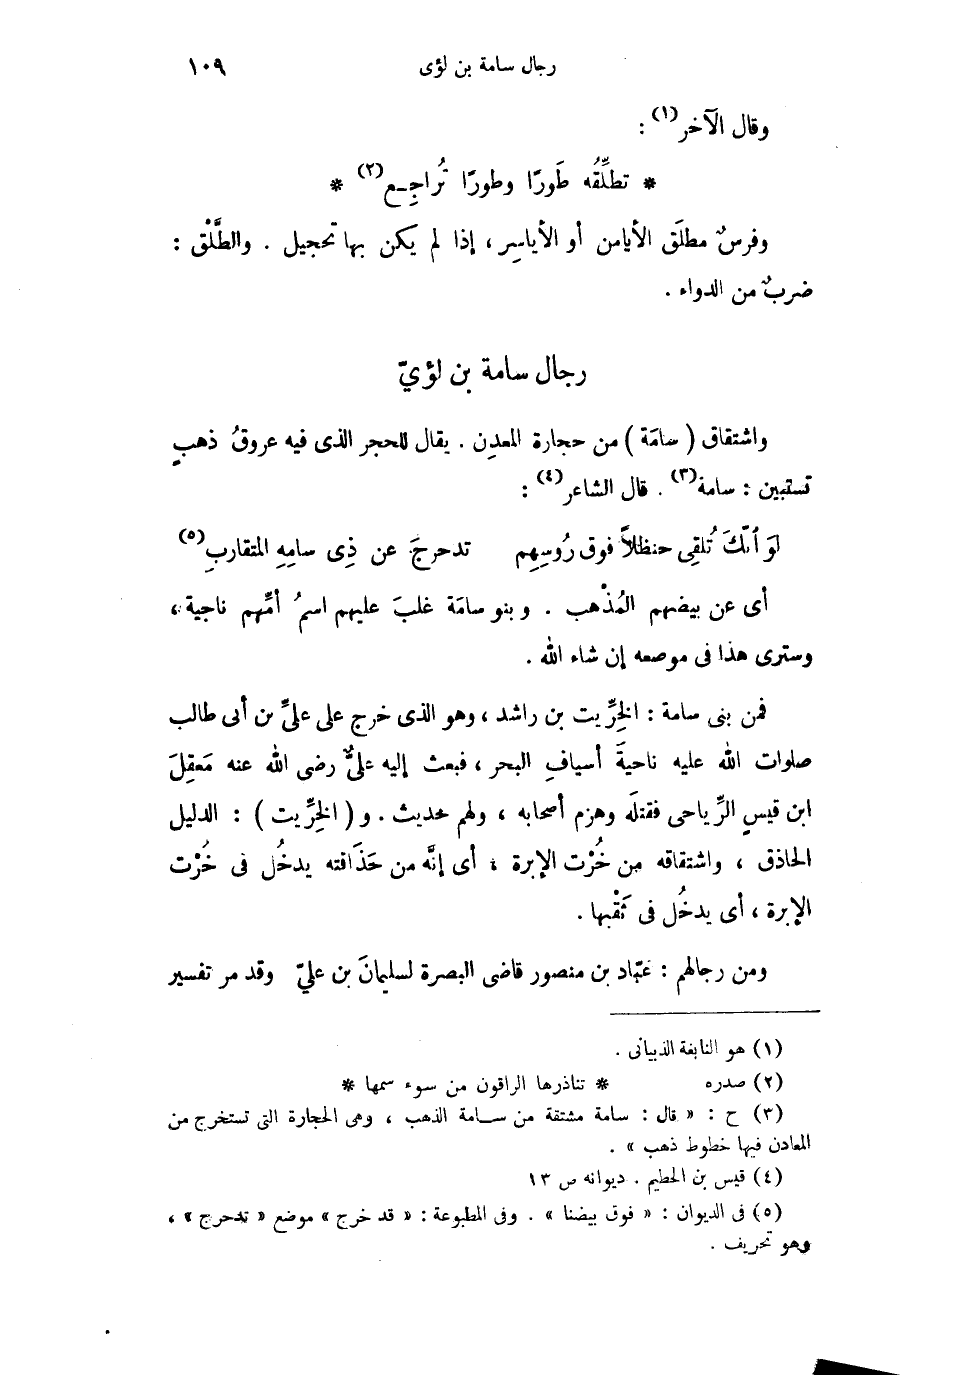 رجال سامة بن لؤى ١٠٩
وقال الآخر(١) :
* تطلِّقُه طَورًا وطورًا تُراجِـع(٢) *
وفرسٌ مطلَق الأيامن أو الأياسِر ، إذا لم يكن بها تحجيل . والطَّلْق :
ضربٌ من الدواء .
رجال سامة بن لؤيّ
واشتقاق ( سامَة ) من حجارة المعدِن . يقال للحجر الذى فيه عروقُ ذهبٍ
تستبين : سامة(٣) . قال الشاعر(٤) :
لوَ أنّكَ تُلقِى حنظلاً فوق رُوسِهِم تدحرجَ عن ذِى سامِهِ المتقاربِ(٥)
أى عن بيضهم المُذْهب . وبنو سامَة غلبَ عليهم اسمُ أمِّهم ناجية ،
وسترى هذا فى موصعه إن شاء الله .
فمن بنى سامة : الخِرِّيت بن راشد ، وهو الذى خرج على علىِّ بن أبى طالب
صلوات الله عليه ناحيةَ أسيافِ البحر ، فبعث إليه علىٌّ رضى الله عنه مَعقِلَ
ابن قيسٍ الرِّياحى فقتلَه وهزم أصحابه ، ولهم حديث . و ( الخِرِّيت ) : الدليل
الحاذق ، واشتقاقه من خُرْت الإبرة ، أى إنَّه من حَذَاقته يدخُل فى خُرْت
الإبرة ، أى يدخُل فى ثَقْبها .
ومن رجالهم : عبّاد بن منصور قاضى البصرة لسليمانَ بن علىّ وقد مر تفسير
(١) هو النابغة الذبيانى .
(٢) صدره * تناذرها الراقون من سوء سمها *
(٣) ح : « قال : سامة مشتقة من سـامة الذهب ، وهى الحجارة التى تستخرج من
المعادن فيها خطوط ذهب » .
(٤) قيس بن الخطيم . ديوانه ص ١٣
(٥) فى الديوان : « فوق بيضنا » . وفى المطبوعة : « قد خرج » موضع « تدحرج » ،
وهو تحريف .